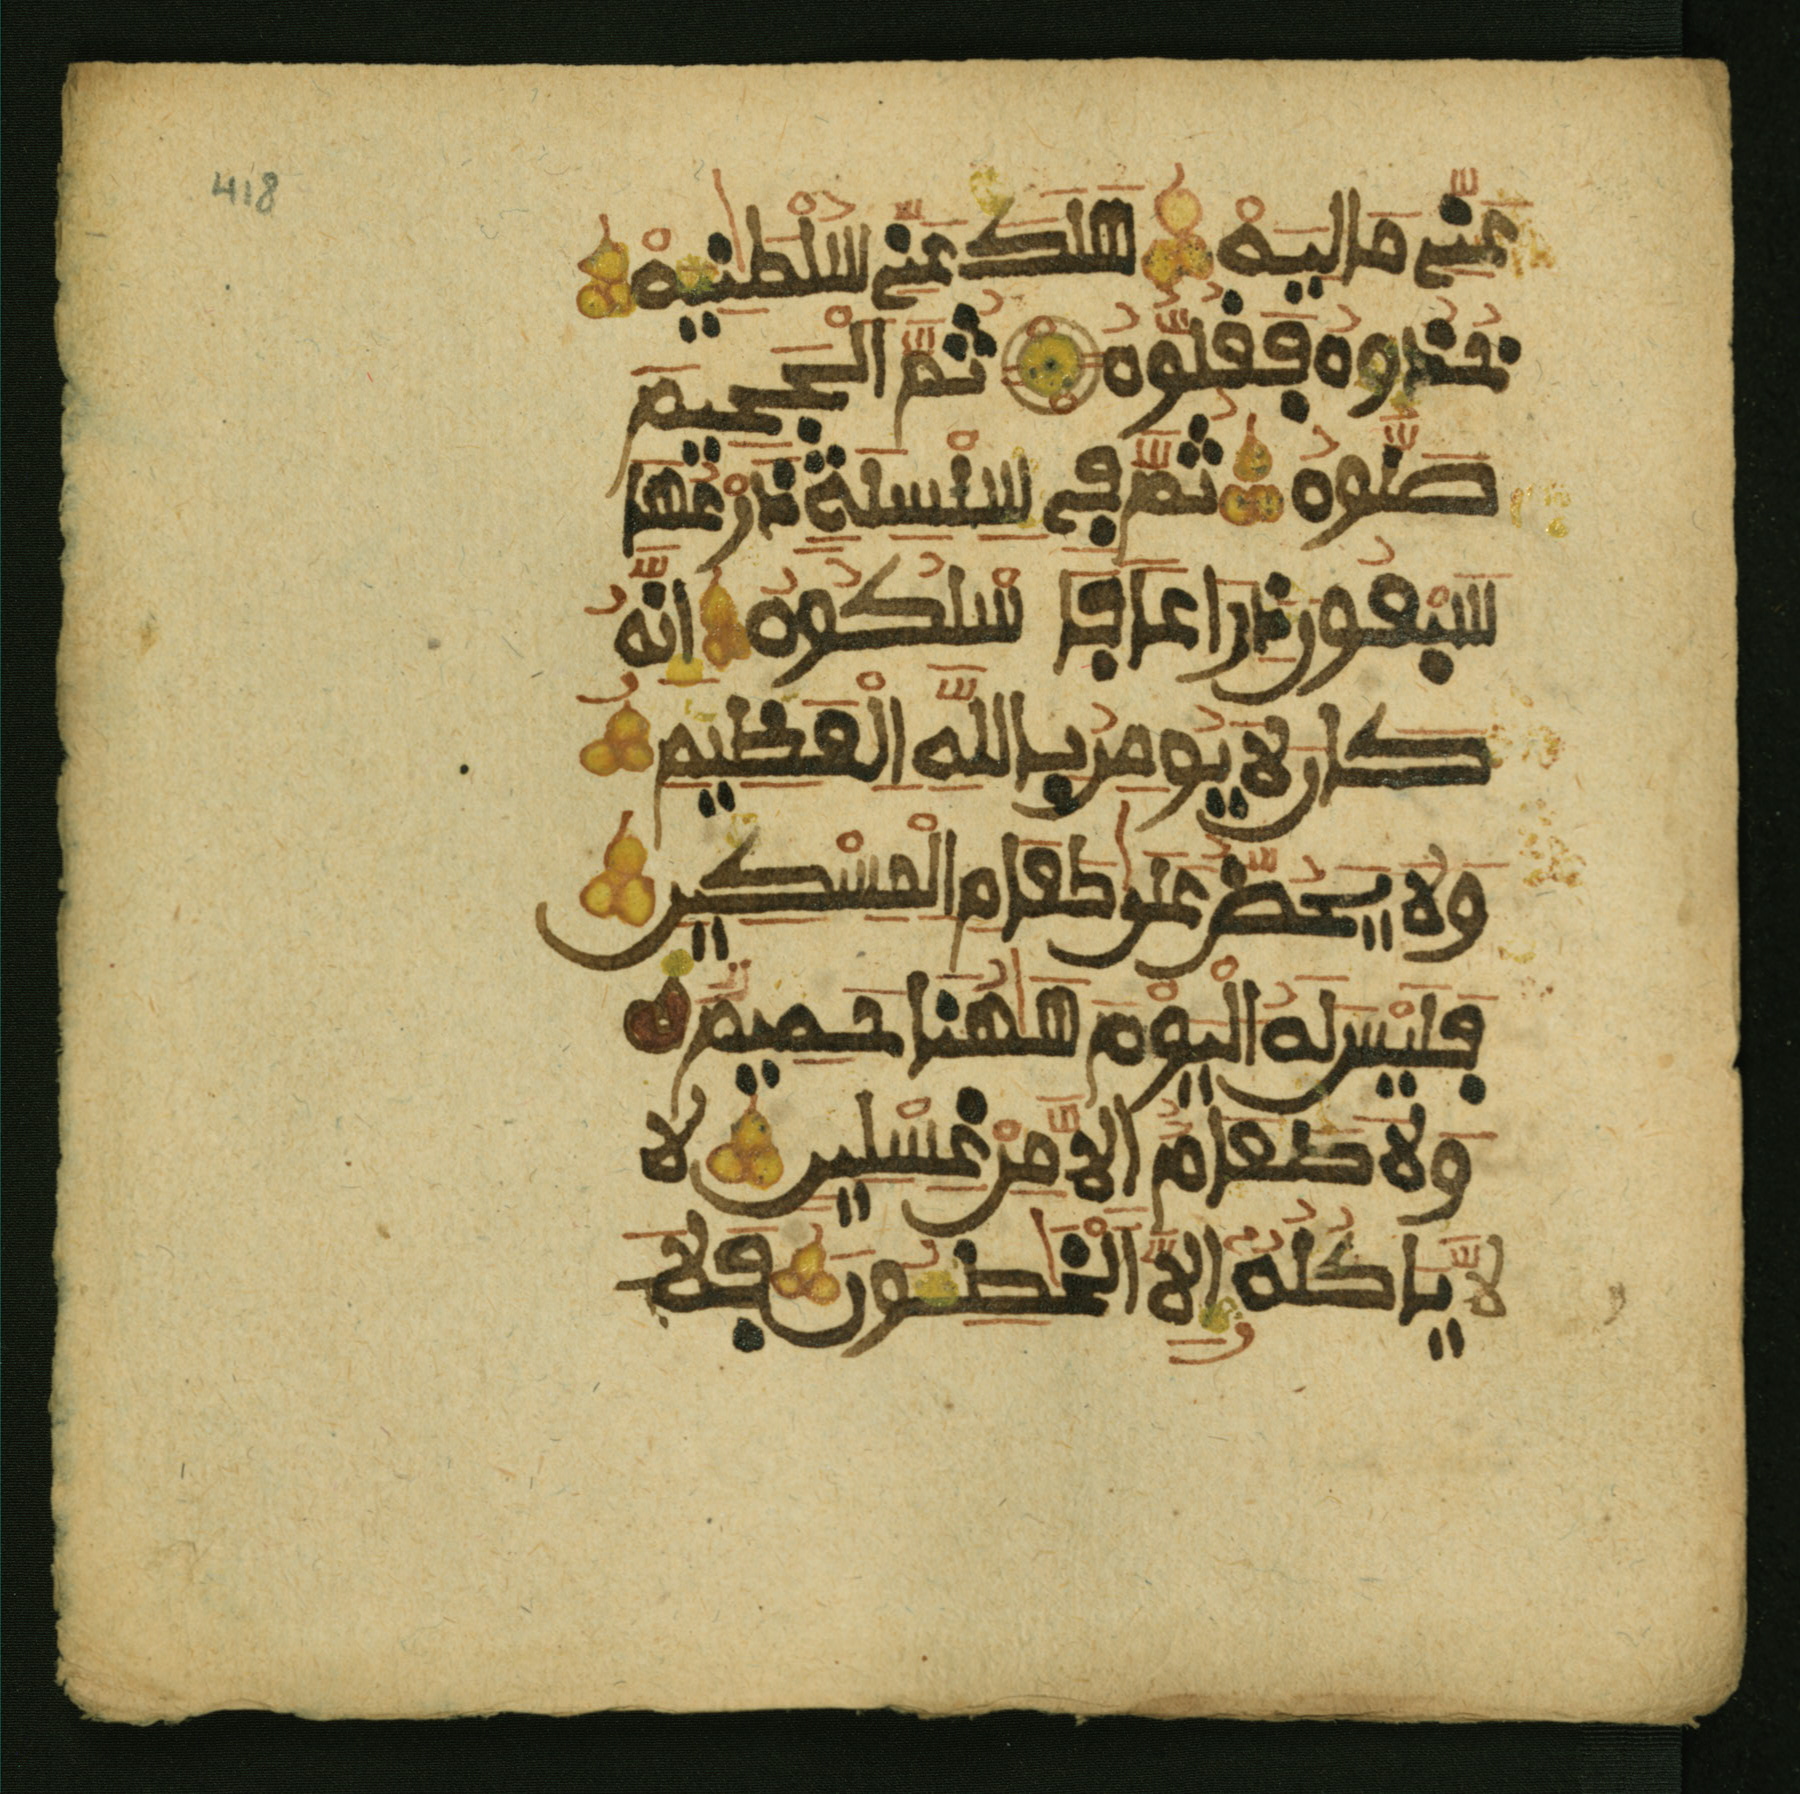 418
عَنِّے مَالِيَهْ هَلَكَ عَنِّے سُلْطَٰنِيَهْ
خُذُوهُ فَغُلُّوهُ ثُمَّ الْجَحِيمَ
صَلُّوهُ ثُمَّ فِے سِلْسِلَةٖ ذَرْعُهَا
سَبْعُونَ ذِرَاعاً فَاسْلُكُوهُ إِنَّهُ
كَانَ لَا يُومِنُ بِاللَّهِ الْعَظِيمِ
وَلَا يَحُضُّ عَلَىٰ طَعَامِ الْمِسْكِينِ
فَلَيْسَ لَهُ الْيَوْمَ هَٰهُنَا حَمِيمٌ
وَلَا طَعَامٌ اِلَّا مِنْ غِسْلِينٍ لَا
لَّا يَاكُلُهُ إِلَّا اَلْخَٰطِـُٔونَ فَلَا